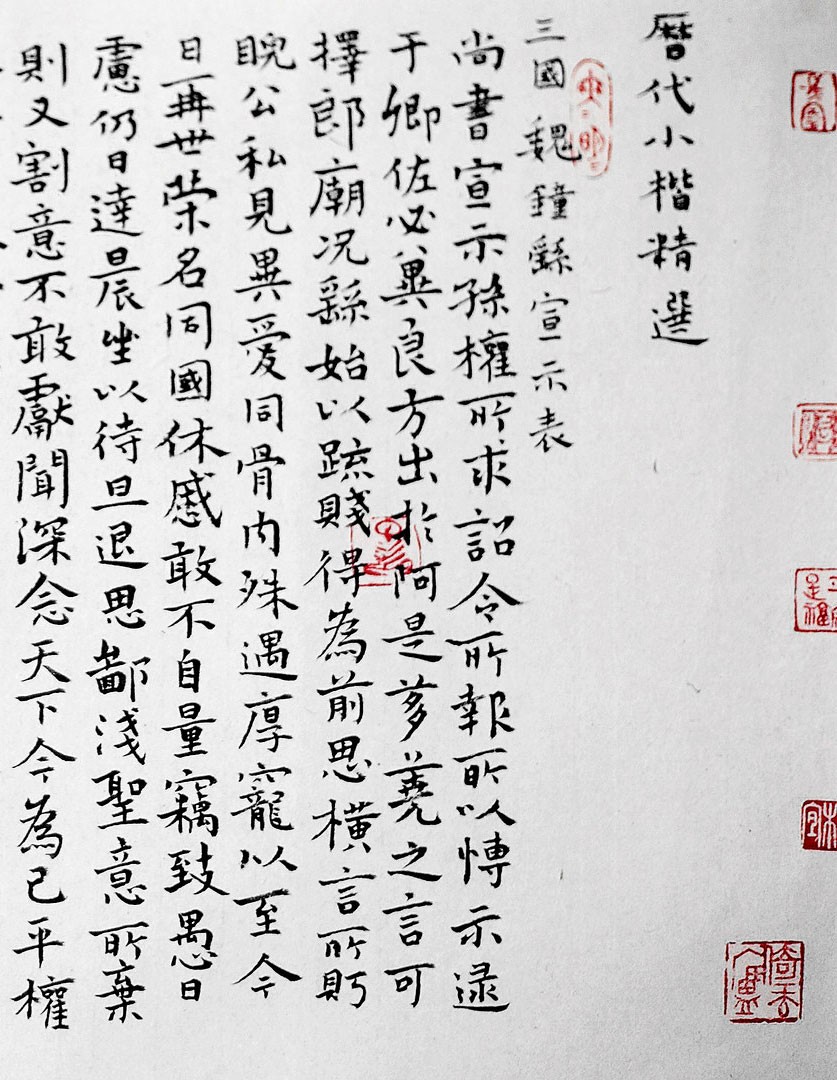 曆代小楷精選
三國魏鐘繇宣示表
尚書宣示孫權所求詔令所報所以博示逮
于卿佐必冀良方出於阿是芻蕘之言可
擇郎廟况繇始以疏賤得為前思橫言所盱
睨公私見異愛同骨肉殊遇厚寵以至今
日再世榮名同國休慼敢不自量竊致愚
慮仍日達晨坐以待旦退思鄙淺聖意所棄
則又割意不敢獻聞深念天下今為已平權